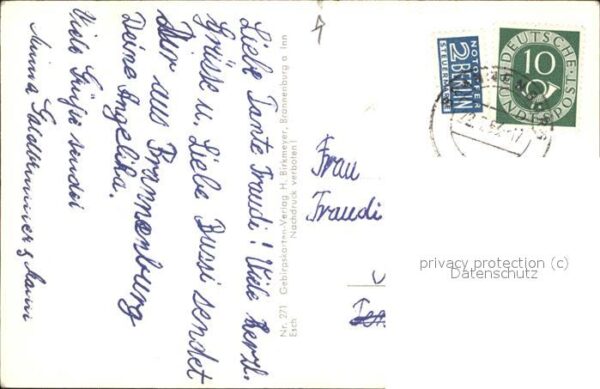 Liebe Tante Traudi! Viele herzl.
Grüße u. Liebe Bussi sendet
Dir aus Brannenburg
Deine Angelika.
Viele Grüße sendet
Minna
Nr. 271 Gebirgskarten-Verlag H. Birkmeyer, Brannenburg a Inn
Esch Nachdruck verboten!
Frau
Traudi
NOTOPFER
2 BERLIN
STEUERMARKE
DEUTSCHE
10
BUNDESPOST
privacy protection (c)
Datenschutz